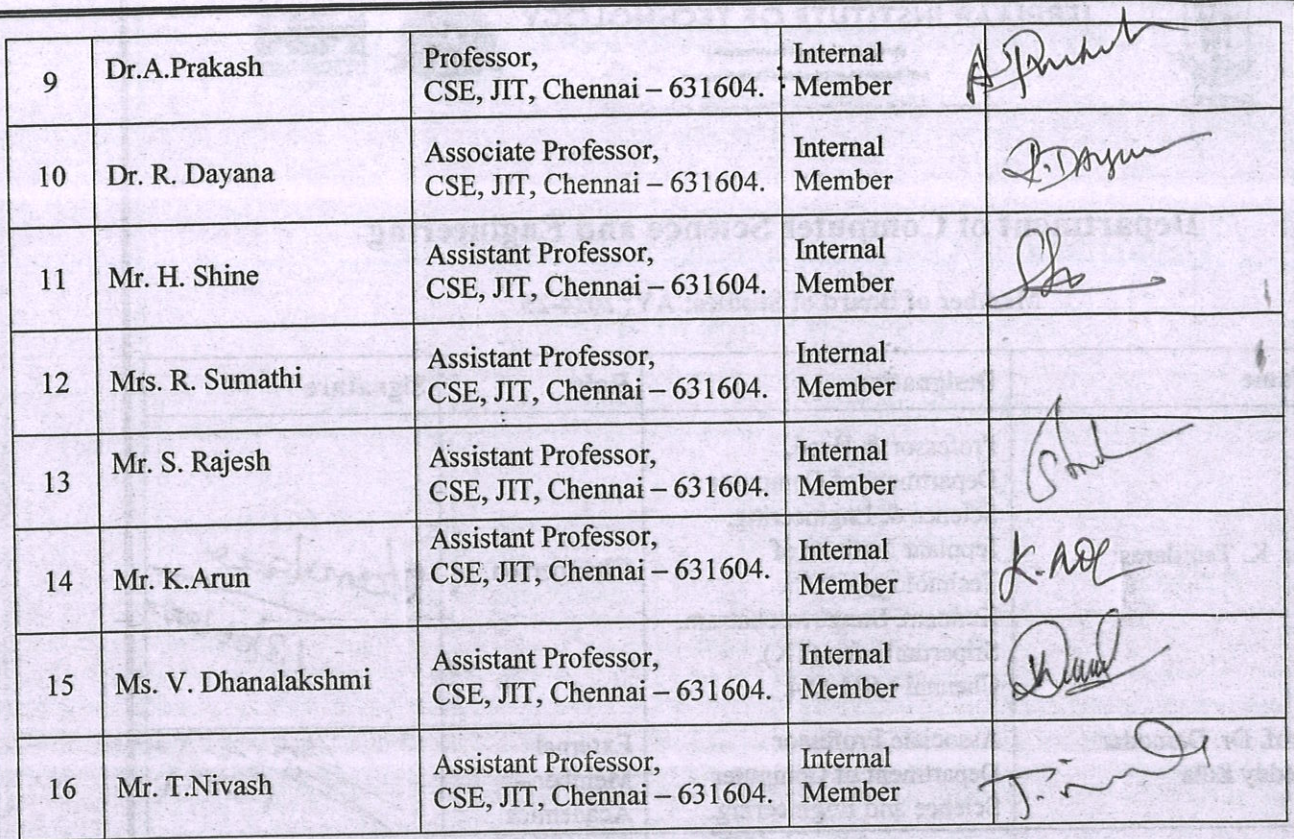 9
Dr.A.Prakash
Professor,
CSE, JIT, Chennai – 631604.
Internal
Member
A Prakash
10
Dr. R. Dayana
Associate Professor,
CSE, JIT, Chennai – 631604.
Internal
Member
R. Dayana
11
Mr. H. Shine
Assistant Professor,
CSE, JIT, Chennai – 631604.
Internal
Member
12
Mrs. R. Sumathi
Assistant Professor,
CSE, JIT, Chennai – 631604.
Internal
Member
13
Mr. S. Rajesh
Assistant Professor,
CSE, JIT, Chennai – 631604.
Internal
Member
14
Mr. K.Arun
Assistant Professor,
CSE, JIT, Chennai – 631604.
Internal
Member
15
Ms. V. Dhanalakshmi
Assistant Professor,
CSE, JIT, Chennai – 631604.
Internal
Member
16
Mr.T.Nivash
Assistant Professor,
CSE, JIT, Chennai – 631604.
Internal
Member